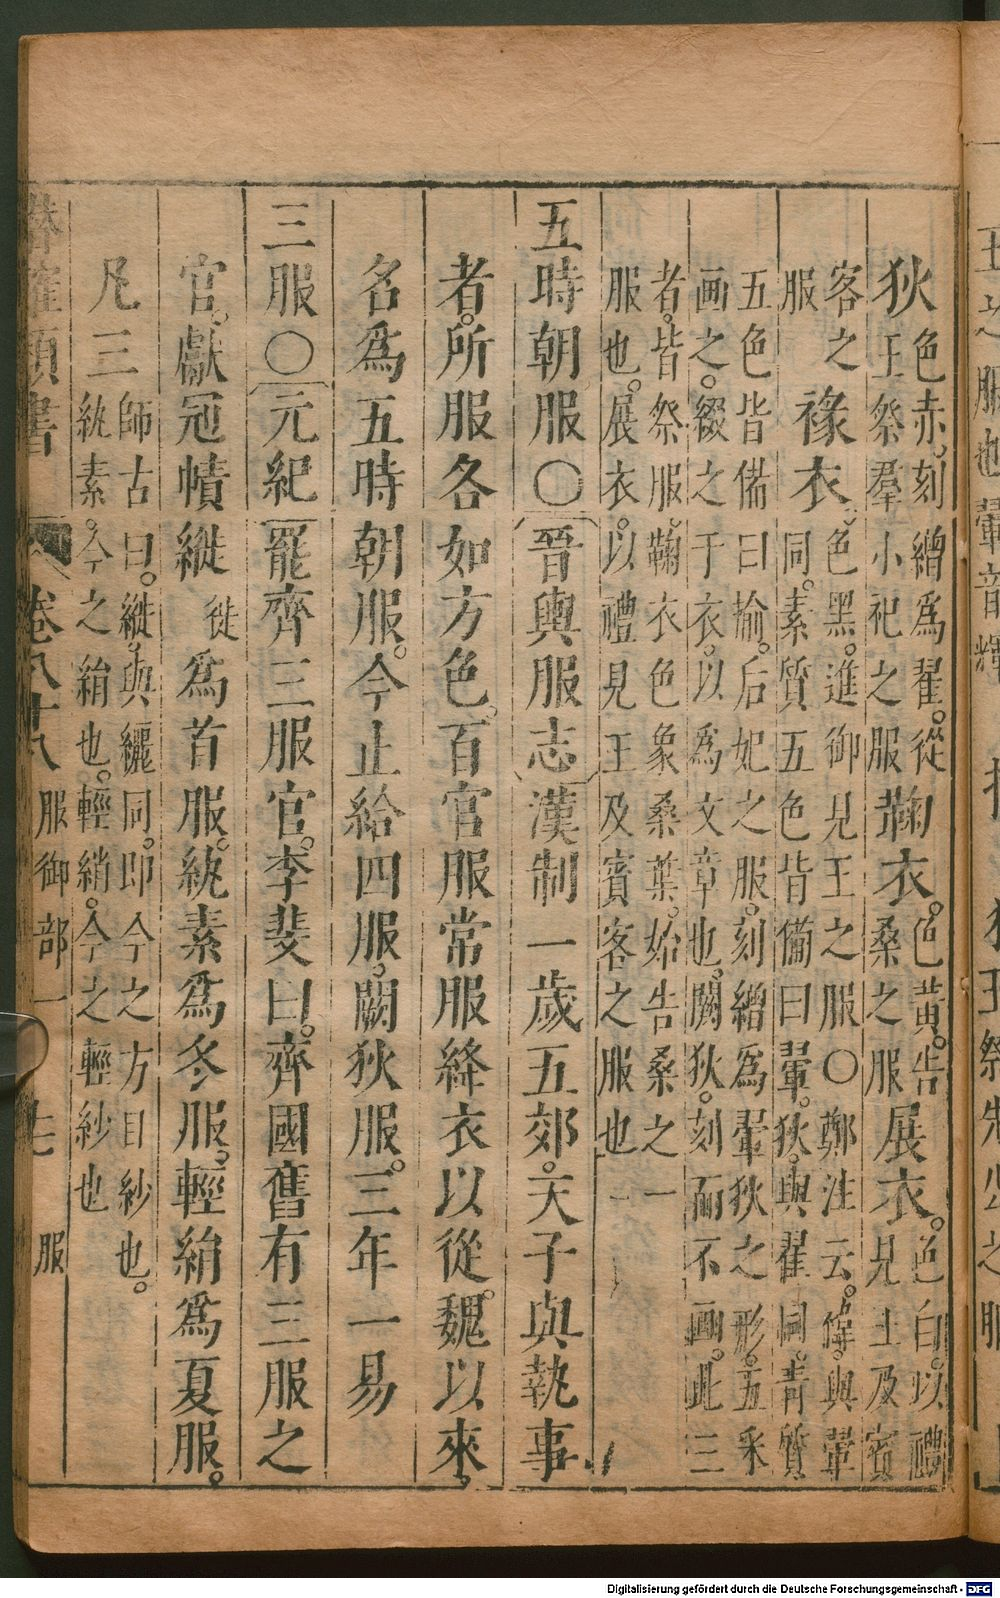 狄色赤。刻繒爲翟。從王祭羣小祀之服鞠衣。色黃。告桑之服展衣。色白。以禮見王及賓
客之服褖衣色黑。進御見王之服○鄭注云。褘與翬同。素質五色皆備曰翬。狄與翟同。青質
五色皆偹曰揄。后妃之服。刻繒爲翬狄之形。五采画之。綴之于衣。以爲文章也。闕狄。刻而不画。此三
者。皆祭服。鞠衣色象桑葉。始告桑之一服也。展衣。以禮見王及賓客之服也
五時朝服○晉輿服志漢制一歲五郊。天子與執事
者。所服各如方色。百官服常服絳衣以從。魏以來。
名爲五時朝服。今止給四服。闕狄服。三年一易
三服○元紀罷齊三服官。李斐曰。齊國舊有三服之
官。獻冠幘縰徙爲首服。紈素爲冬服。輕綃爲夏服。
凡三師古曰。縰。與纚同。即今之方目紗也。紈素。今之絹也。輕綃。今之輕紗也
類書 卷八十八 服御部一 十七 服
Digitalisierung gefördert durch die Deutsche Forschungsgemeinschaft - DFG